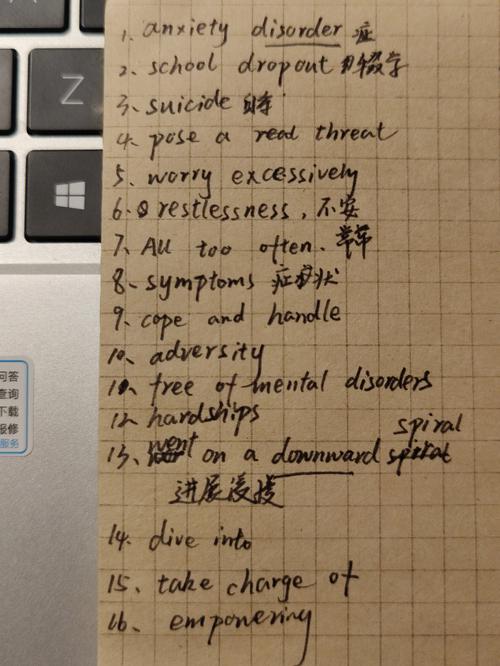 Z
问答
查询
下载
报修
服务
1. anxiety disorder 症
2. school dropout 辍学
3. suicide 自杀
4. pose a real threat
5. worry excessively
6. restlessness, 不安
7. All too often. 常常
8. symptoms 症状
9. cope and handle
10. adversity
10. free of mental disorders
12. hardships
spiral
13. went on a downward
进展缓慢
14. dive into
15. take charge of
16. empowering